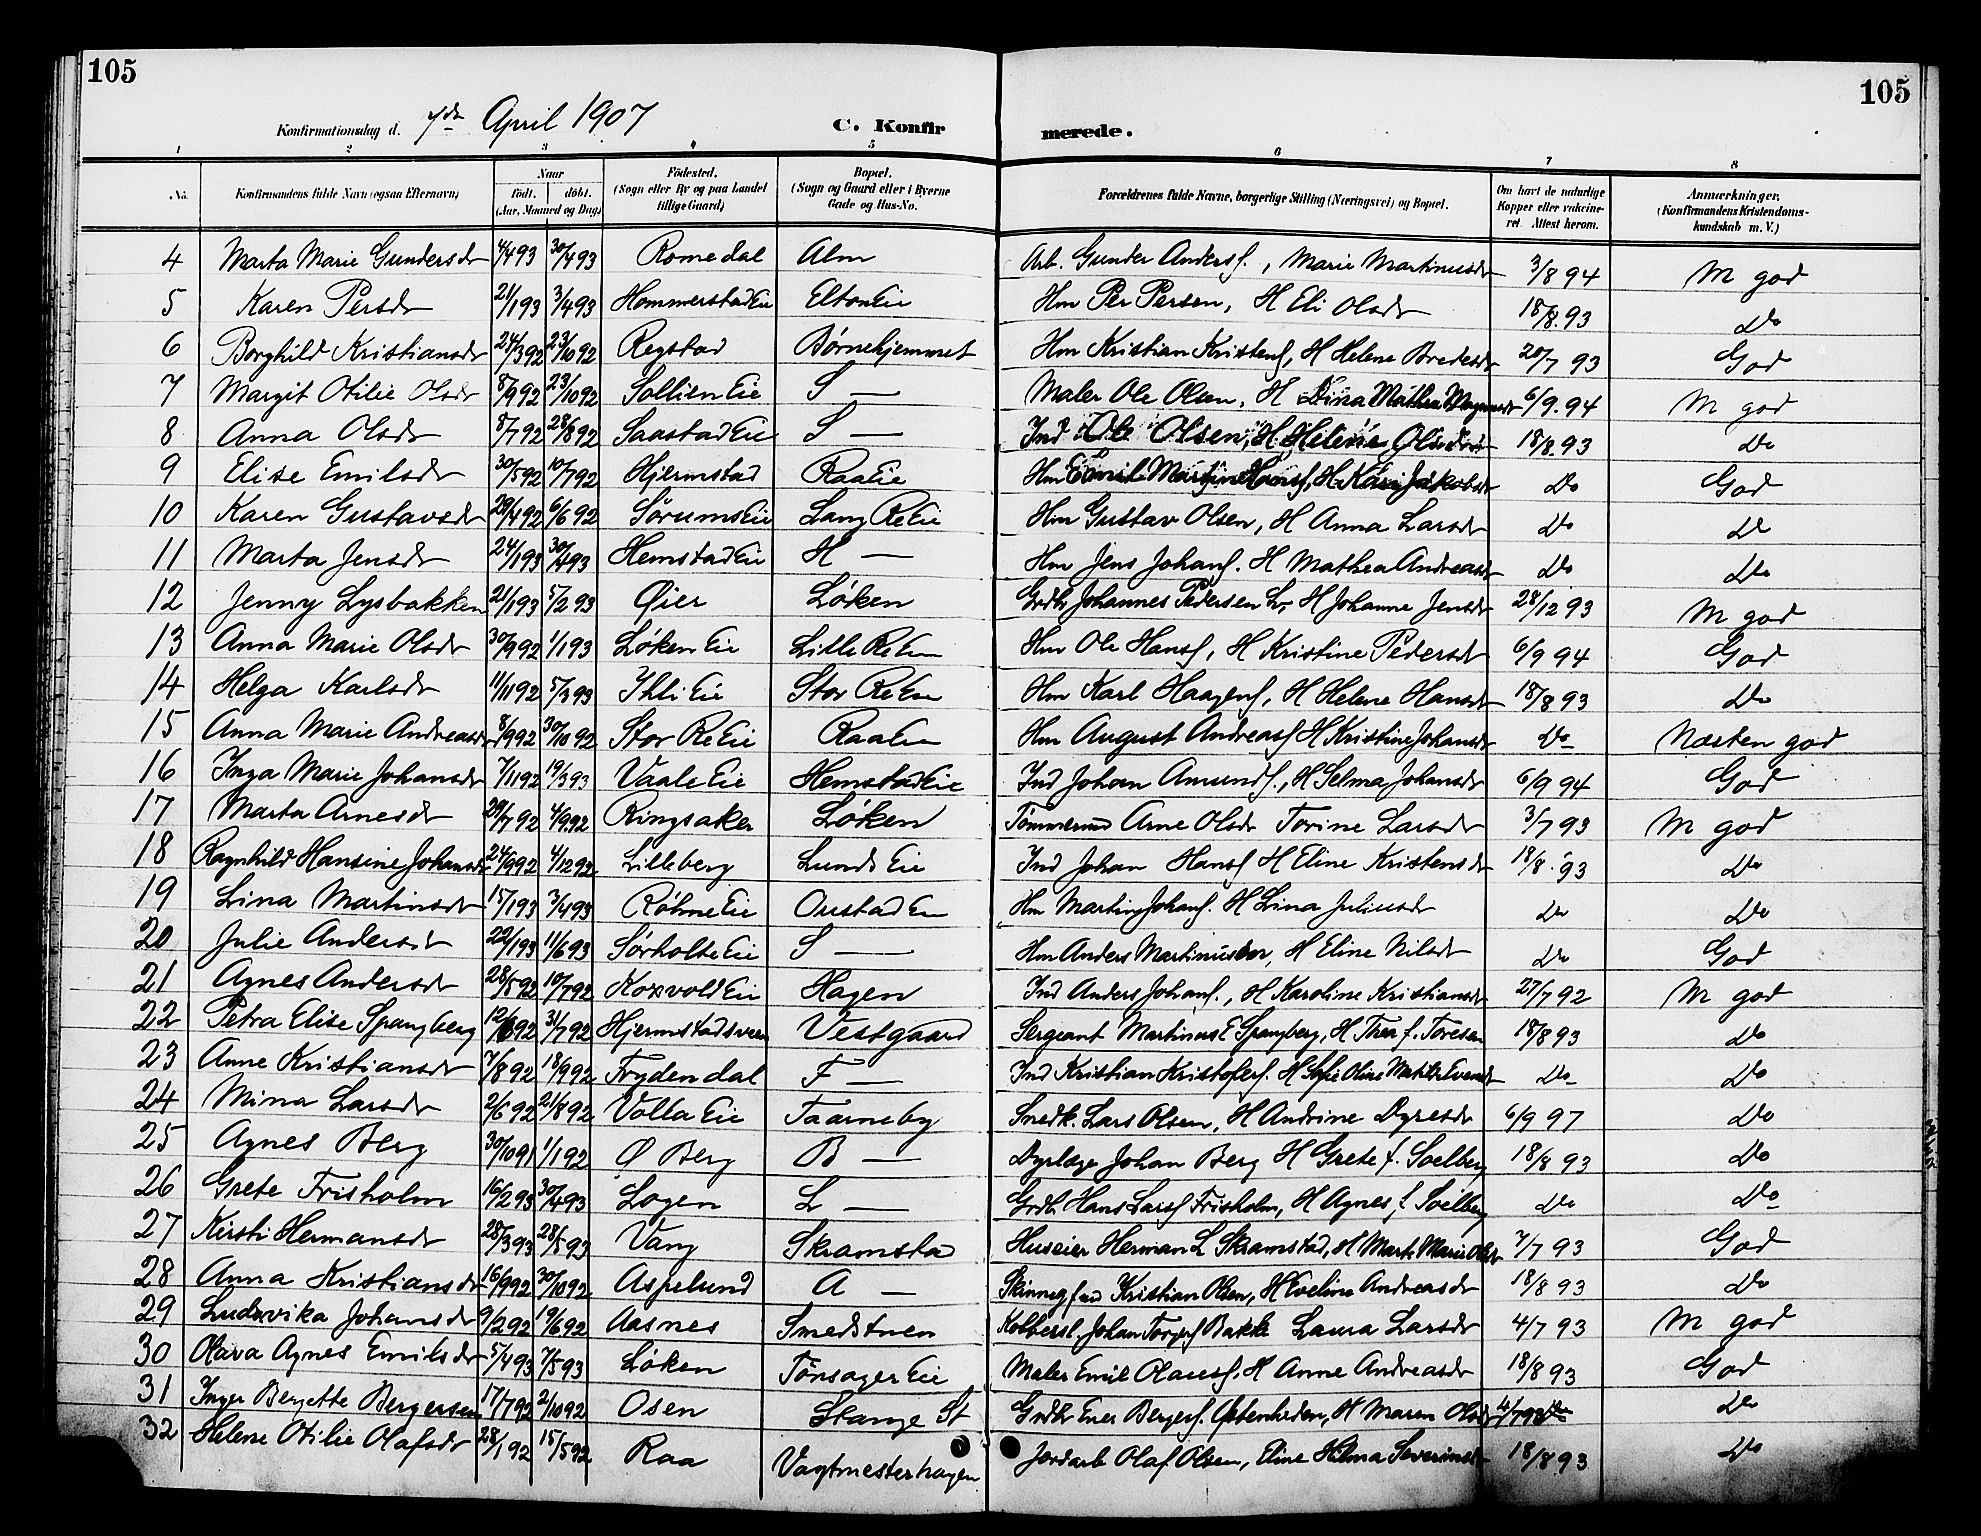 105
105
Konfirmationsdag d. 7de April 1907
C. Konfirmerede.
1 2 3 4 5 6 7 8
No. Konfirmandens fulde Navn (ogsaa Efternavn) Naar född. döbt. (Aar, Maaned og Dag) Födested. (Sogn eller By og paa Landet tillige Gaard) Bopæl. (Sogn og Gaard eller i Byerne Gade og Hus-No. Forældrenes fulde Navne, borgerlige Stilling (Næringsvei) og Bopæl. Om havt de naturlige Kopper eller vakcineret Attest herom. Anmærkninger. (Konfirmandens Kristendomskundskab m. V.)
4 Marta Marie Gundersdr 4/4 93 30/4 93 Romedal Alm Arb. Gunder Andersf., Marie Martinusdr 3/8 94 M god
5 Karen Persdr 21/1 93 3/4 93 Hommerstad Eie Elton Eie Hm Per Persen, H Eli Olsdr 18/8.93 Do
6 Borghild Kristiansdr 24/3 92 23/10 92 Regstad Børnehjemmet Hm Kristian Kristenf, H Helene Bredesdr 20/7 93 God
7 Margit Otilie Olsdr 8/9 92 23/10 92 Sollien Eie S — Maler Ole Olsen, H Dina Mathea 6/9.94 M god
8 Anna Olsdr 8/7 92 28/8 92 Saastad Eie S — Ind Ole Olsen, H Helene Olsdr 18/8.93 Do
9 Elise Emilsdr 30/5 92 10/7 92 Hjermstad Raa Eie Hm Emil Martin Hansf, H Kari Jakobsdr Do God
10 Karen Gustavsdr 29/4 92 6/6 92 Sørums Eie Lang Re Eie Hm Gustav Olsen, H Anna Larsdr Do Do
11 Marta Jensdr 24/1 93 30/4 93 Hemstad Eie H — Hm Jens Johanf. H Mathea Andreasdr Do Do
12 Jenny Lysbakken 21/1 93 5/2 93 Øier Løken Grdbr Johannes Pedersen L, H Johanne Jensdr 28/12 93 M god
13 Anna Marie Olsdr 30/9 92 1/1 93 Løken Eie Lille Re Eie Hm Ole Hansf, H Kristine Pedersdr 6/9 94 God
14 Helga Karlsdr 11/11 92 5/3 93 Ihli Eie Stor Re Eie Hm Karl Haagenf, H Helene Hansdr 18/8 93 Do
15 Anna Marie Andreasdr 8/9 92 30/10 92 Stor Re Eie Raa Eie Hm August Andreasf H Kristine Johansdr Do Næsten god
16 Inga Marie Johansdr 7/11 92 19/3 93 Vaale Eie Hemstad Eie Ind Johan Amundf., H. Selma Johansdr 6/9 94 God
17 Marta Arnesdr 29/7 92 4/9 92 Ringsaker Løken Tømmermd Arne Olsdr Torine Larsdr 3/7 93 M god
18 Ragnhild Hansine Johansdr 24/9 92 4/12 92 Lilleberg Lunds Eie Ind Johan Hansf H Eline Kristensdr 18/8.93 Do
19 Lina Martinsdr 15/1 93 3/4 93 Røhne Eie Oustad Eie Hm Martin Johanf. H Lina Juliusdr Do Do
20 Julie Andersdr 22/1 93 11/6 93 Sørholte Eie S — Hm Anders Martinussen, H Eline Nilsdr Do God
21 Agnes Andersdr 28/5 92 10/7 92 Korsvold Eie Hagen Ind Anders Johanf., H Karoline Kristiansdr 27/7 92 M god
22 Petra Elise Spangberg 12/6 92 31/7 92 Hjermstadsveen Vestgaard Sergeant Martinus E Spangberg, H Thea f. Toresen 18/8 93 Do
23 Anne Kristiansdr 7/8 92 18/9 92 Frydendal F — Ind Kristian Kristoferf. H Sofie Oline Matilde Evensdr Do Do
24 Mina Larsdr 2/6 92 21/8 92 Volla Eie Taarneby Snedk. Lars Olsen, H Andrine Dyresdr 6/9 97 Do
25 Agnes Berg 30/10 91 1/1 92 Ø Berg B — Dyrlæge Johan Berg H Grete f. Soelberg 18/8 93 Do
26 Grete Frisholm 16/2 93 30/4 93 Logen L — Grdbr Hans Larsf Frisholm, H Agnes f. Soelberg Do Do
27 Kirsti Hermansdr 28/3 93 28/5 93 Vang Skramstad Huseier Herman L Skramstad, H Marte Marie Olsdr 7/7 93 God
28 Anna Kristiansdr 16/9 92 30/10 92 Aspelund A — Kristian Olsen, H Eveline Andreasdr 18/8 93 Do
29 Ludovika Johansdr 9/2 92 19/6 92 Aasnes Smedstuen Kobbersl. Johan Bakke Laura Larsdr 4/7 93 M god
30 Olava Agnes Emilsdr 5/4 93 7/5 93 Løken Tønsager Eie Maler Emil Olausf. H Anne Andreasdr 18/8 93 God
31 Inger Bergette Bergersen 17/7 92 2/10 92 Osen Stange St Grdbr Ener Bergerf. Østenheden, H Maren Olsdr 4/7 93 Do
32 Helene Otilie Olafsdr 28/1 92 15/5 92 Raa Vagtmesterhagen Jordarb Olaf Olsen, Eline Hilma Severinsdr 18/8 93 Do